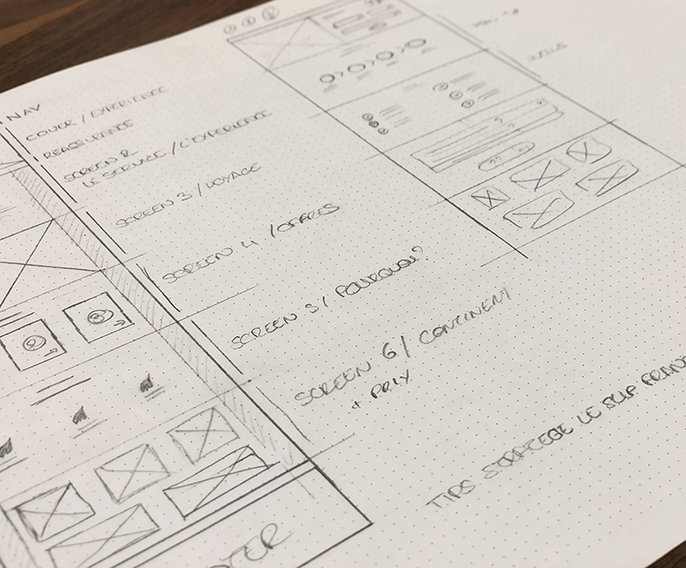 NAV
COVER / EXPERIENCE
REASSURANCE
SCREEN 2
LE SERVICE / L'EXPERIENCE
SCREEN 3 / VOYAGE
SCREEN 4 / OFFRES
SCREEN 5 / POURQUOI?
SCREEN 6 / CONTINENT
+ PRIX
TIPS STRATEGE LE SLIP FRAN